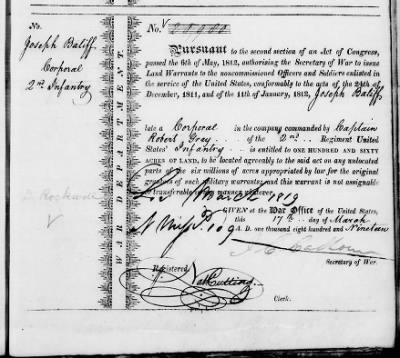 No.
Joseph Batiff
Corporal
2nd Infantry
WAR DEPARTMENT.
No.
Pursuant to the second section of an Act of Congress,
passed the 6th of May, 1812, authorising the Secretary of War to issue
Land Warrants to the noncommissioned Officers and Soldiers enlisted in
the service of the United States, conformably to the acts of the 24th of
December, 1811, and of the 11th of January, 1812, Joseph Batiff
late a Corporal in the company commanded by Captain
Robert Grey of the 2nd Regiment United
States' Infantry is entitled to ONE HUNDRED AND SIXTY
ACRES OF LAND, to be located agreeably to the said act on any unlocated
parts of the six millions of acres appropriated by law for the original
grantees of such military warrants; and this warrant is not assignable
or transferable in any manner whatever.
March 1819
GIVEN at the War Office of the United States,
this 17th day of March
A. D. one thousand eight hundred and Nineteen
J C Calhoun
Secretary of War.
Registered
Nat Cutting
Clerk.